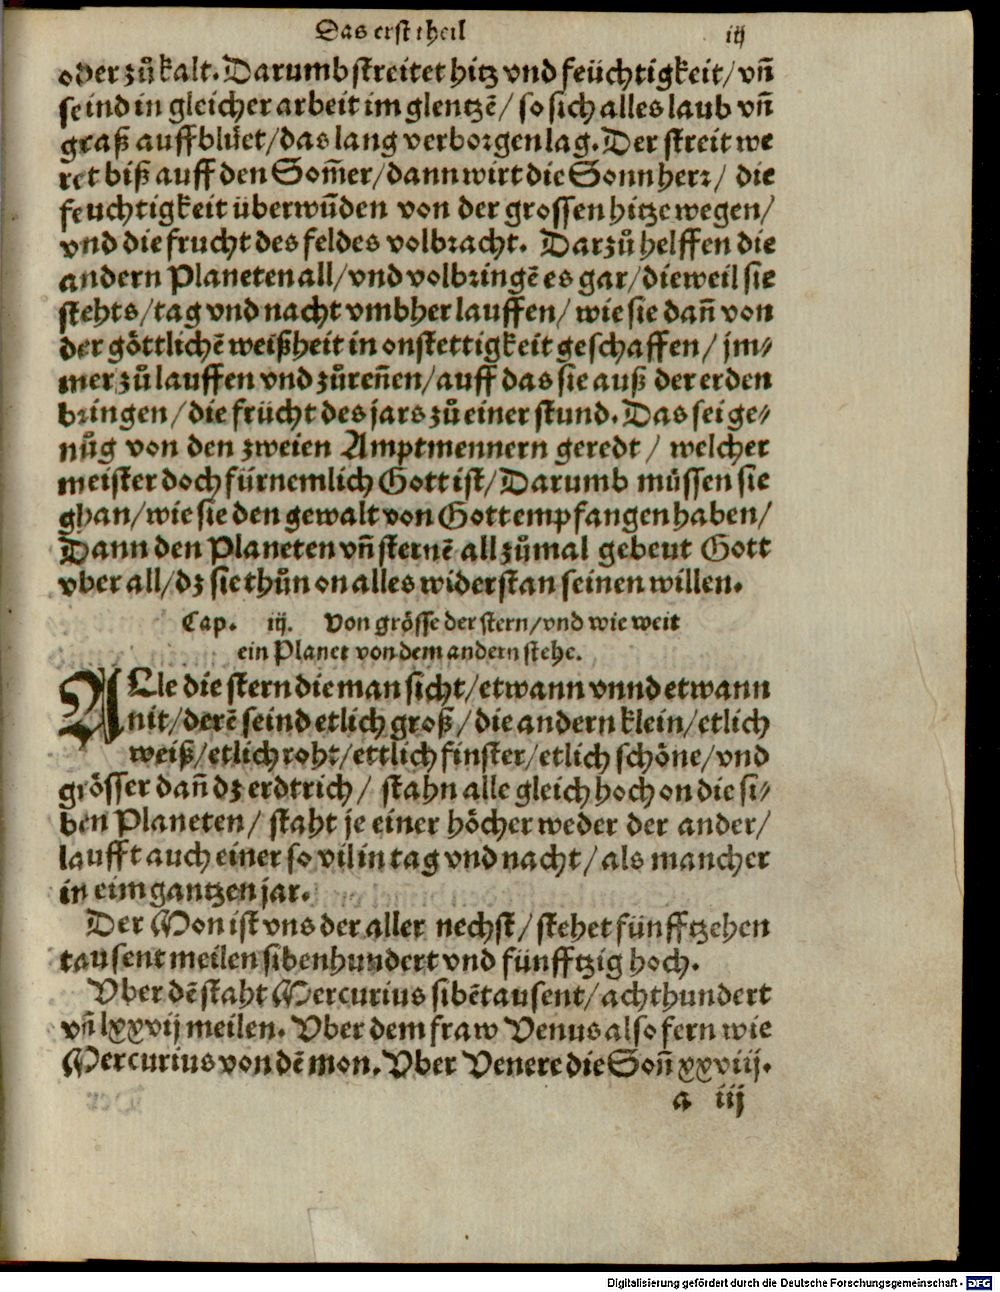 Das erst theil iij
oder zů kalt. Darumb streitet hitz vnd feüchtigkeit/ vñ
seind in gleicher arbeit im glentzẽ/ so sich alles laub vñ
graß auffblüet/ das lang verborgen lag. Der streit we
ret biß auff den Som̃er/ dann wirt die Sonn herr/ die
feuchtigkeit überwũden von der grossen hitze wegen/
vnd die frucht des feldes volbracht. Darzů helffen die
andern Planeten all/ vnd volbringẽ es gar/ dieweil sie
stehts/ tag vnd nacht vmbher lauffen/ wie sie dañ von
der göttlichẽ weißheit in onstettigkeit geschaffen/ jm⸗
mer zů lauffen vnd zů reñen/ auff das sie auß der erden
bringen/ die frücht des jars zů einer stund. Das sei ge⸗
nůg von den zweien Amptmennern geredt/ welcher
meister doch fürnemlich Gott ist/ Darumb müssen sie
ghan/ wie sie den gewalt von Gott empfangen haben/
Dann den Planeten vñ sternẽ all zůmal gebeut Gott
vber all/ dz sie thůn on alles widerstan seinen willen.
Cap. iij. Von grösse der stern/ vnd wie weit
ein Planet von dem andern stehe.
ALle die stern die man sicht/ etwann vnnd etwann
nit/ derẽ seind etlich groß/ die andern klein/ etlich
weiß/ etlich roht/ ettlich finster/ etlich schöne/ vnd
grösser dañ dz erdtrich/ stahn alle gleich hoch on die si⸗
ben Planeten/ staht je einer höcher weder der ander/
laufft auch einer so vil in tag vnd nacht/ als mancher
in eim gantzen jar.
Der Mon ist vns der aller nechst/ stehet fünfftzehen
tausent meilen sibenhundert vnd fünfftzig hoch.
Vber dẽ staht Mercurius sibẽtausent/ achthundert
vñ lxxvij meilen. Vber dem fraw Venus also fern wie
Mercurius von dẽ mon. Vber Venere die Soñ xxviij.
a iij
Digitalisierung gefördert durch die Deutsche Forschungsgemeinschaft - DFG